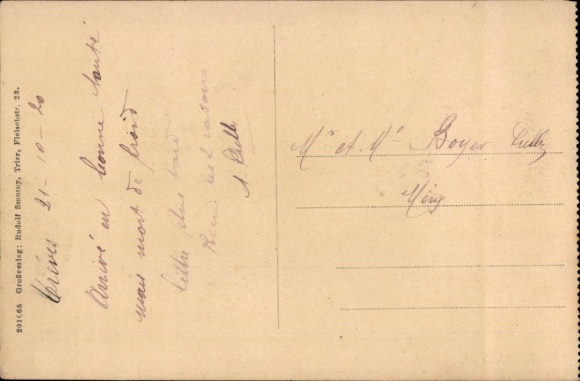 201065 Großverlag: Rudolf Smutny, Trier, Fleischstr. 28.
Trèves 21-10-20
Arrivé en bonne santé
mais mort de froid
lettre plus tard
A.
Mr et Me Boyer
Méry